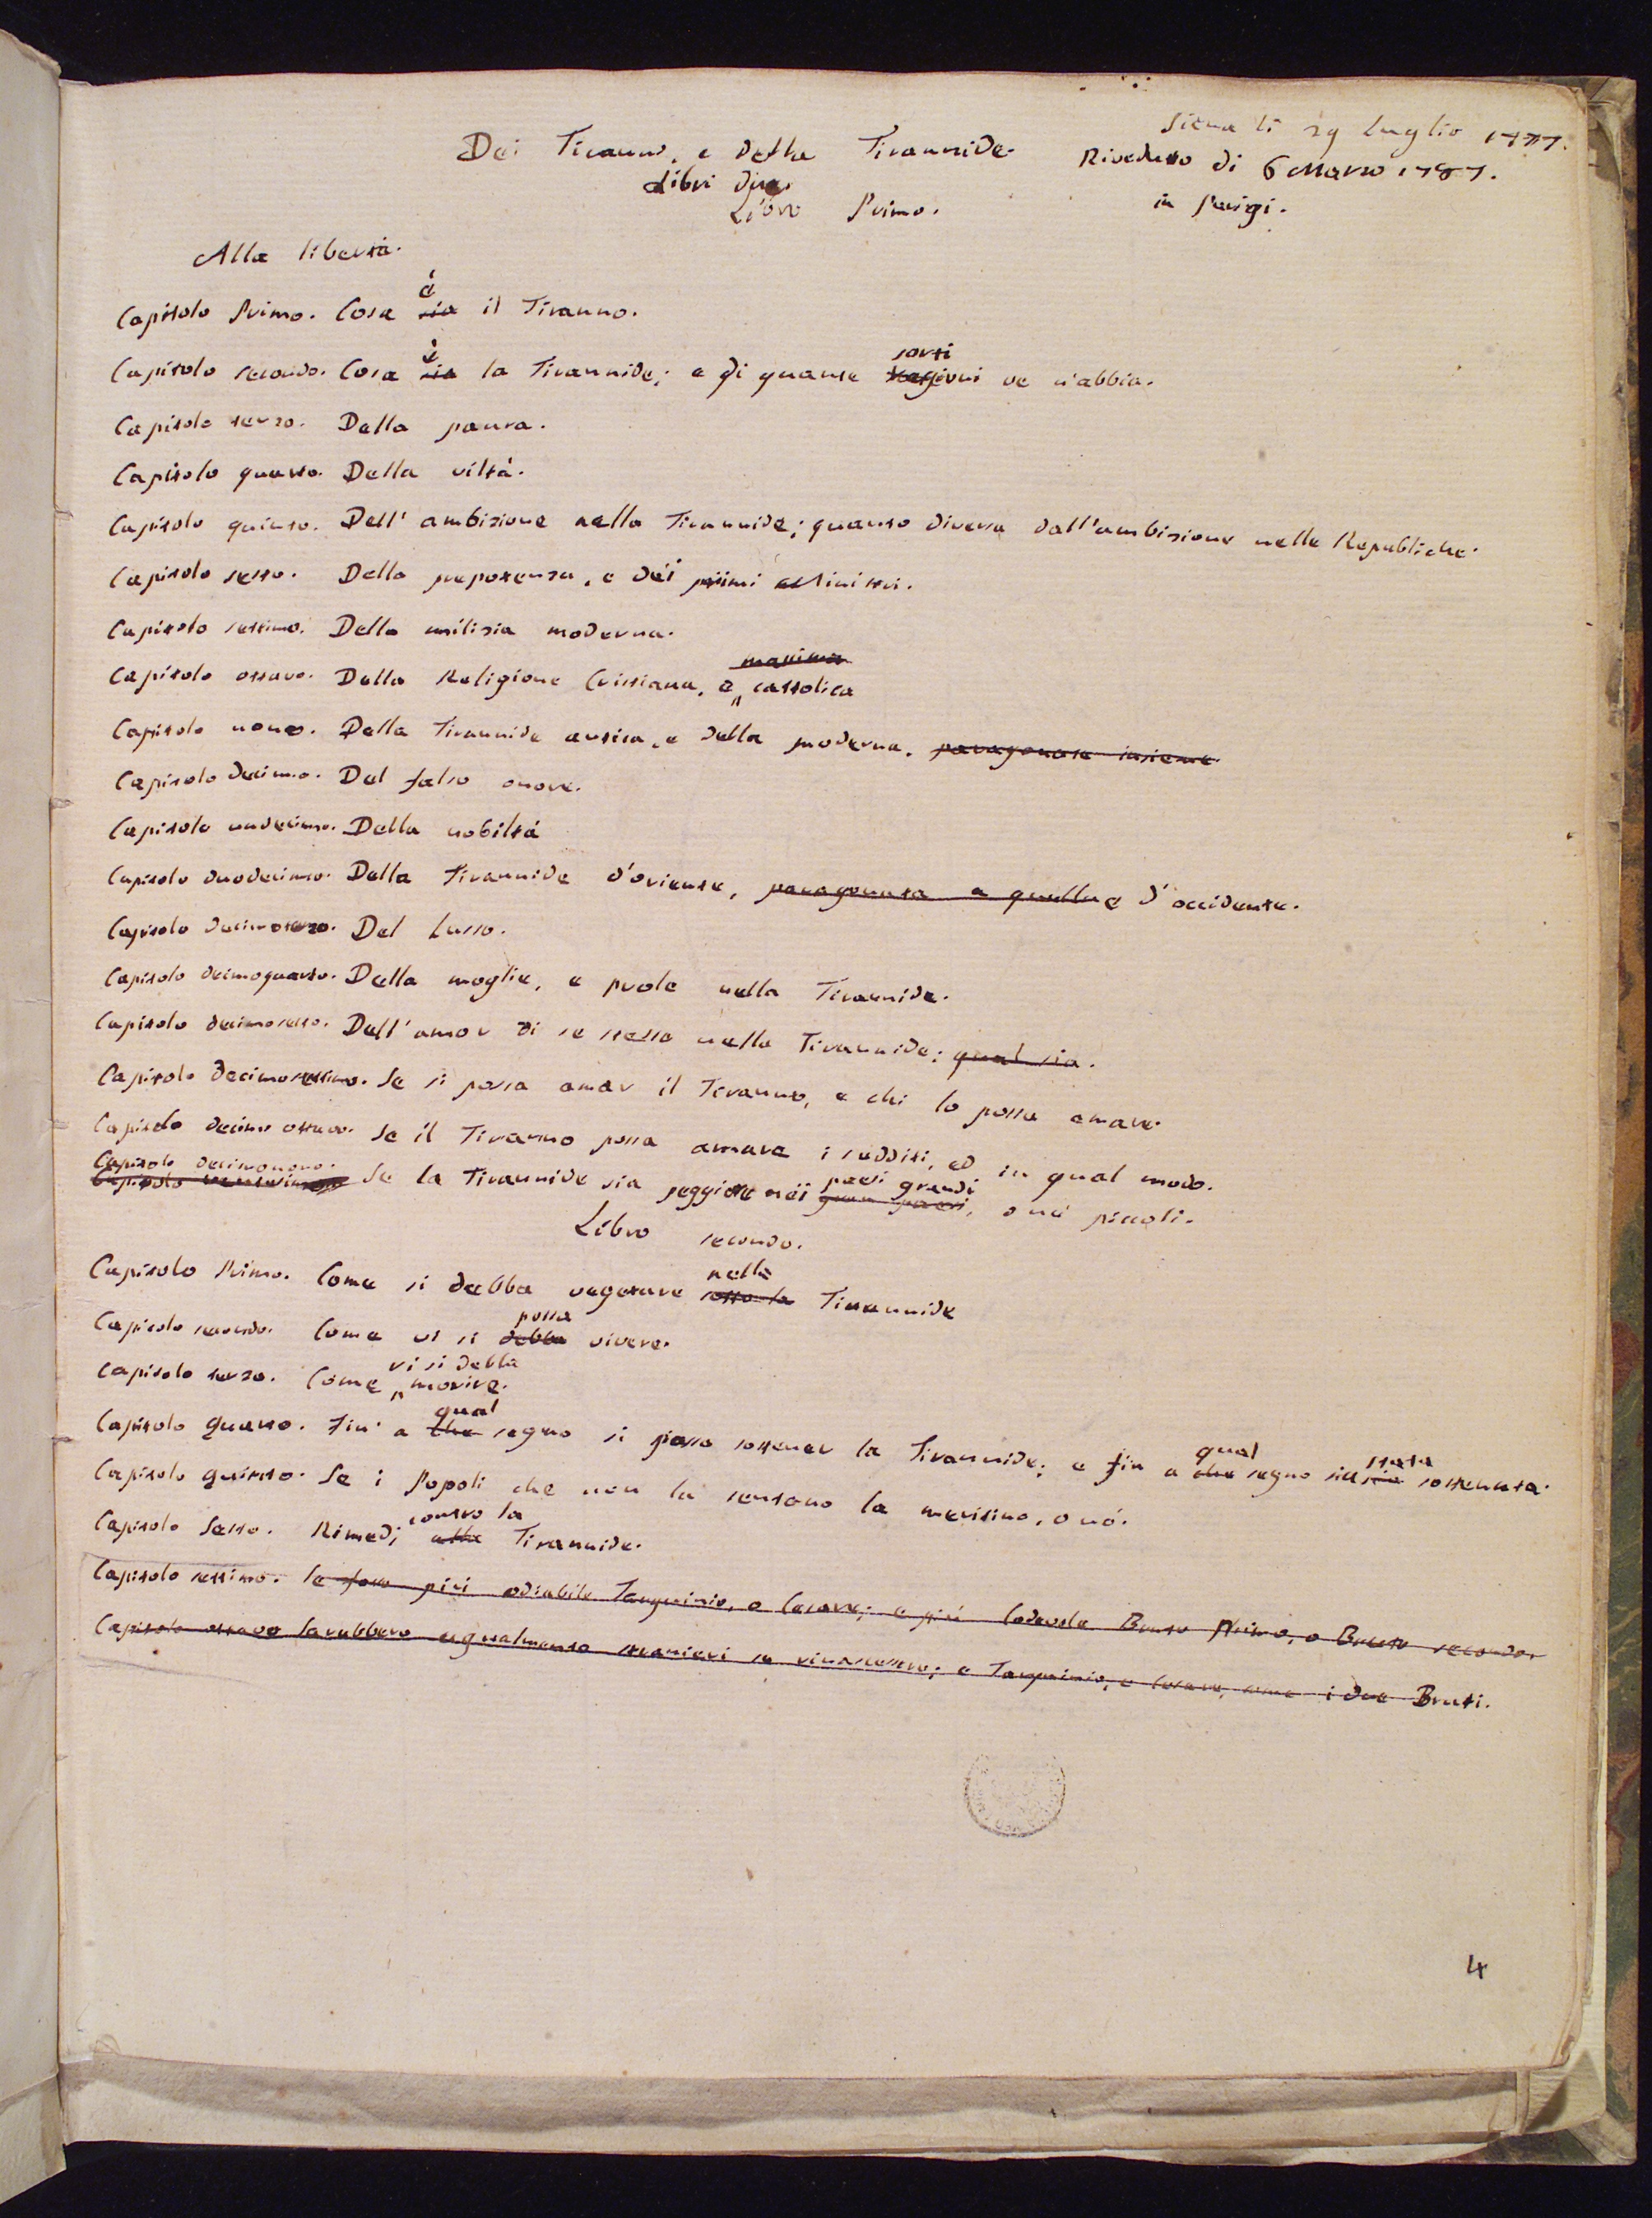 Siena li 29 Luglio 1777.
Dei Tiranni, e della Tirannide.
Riveduto di 6 Marzo 1787.
Libri due.
in Parigi.
Libro Primo.
Alla libertà.
è
Capitolo Primo. Cosa sia il Tiranno.
è sorti
Capitolo secondo. Cosa sia la Tirannide; e di quante ragioni ve n'abbia.
Capitolo terzo. Della paura.
Capitolo quarto. Della viltà.
Capitolo quinto. Dell'ambizione nella Tirannide; quanto diversa dall'ambizione nelle Republiche.
Capitolo sesto. Della prepotenza, e dei primi Ministri.
Capitolo settimo. Della milizia moderna.
massima
Capitolo ottavo. Della Religione Cristiana, e cattolica
Capitolo nono. Della Tirannide antica, e della moderna. paragonate insieme.
Capitolo decimo. Del falso onore.
Capitolo undecimo. Della nobiltà
Capitolo duodecimo. Della Tirannide d'oriente, paragonata a quella e d'occidente.
Capitolo decimoterzo. Del Lusso.
Capitolo decimoquarto. Della moglie, e prole nella Tirannide.
Capitolo decimosesto. Dell'amor di se stesso nella Tirannide: qual sia.
Capitolo decimosettimo. Se si possa amar il Tiranno, e chi lo possa amare.
Capitolo decimo ottavo. Se il Tiranno possa amare i sudditi, ed in qual modo.
Capitolo decimonono. paesi grandi
Capitolo Se la Tirannide sia peggiore nei gran paesi, o nei piccoli.
Libro secondo.
nella
Capitolo Primo. Come si debba vegetare sotto la Tirannide
possa
Capitolo secondo. Come vi si debba vivere.
vi si debba
Capitolo terzo. Come morire.
qual qual stata
Capitolo quarto. Fin' a che segno si possa sostener la Tirannide; e fin a che segno sia sia sostenuta.
Capitolo quinto. Se i Popoli che non la sentono la meritino, o nò.
contro la
Capitolo Sesto. Rimedj alla Tirannide.
Capitolo settimo. Se fosse più odiabile Tarquinio, o Cesare; e più lodevole Bruto Primo, o Bruto secondo.
Capitolo ottavo Sarebbero ugualmente stranieri se rinascessero; e Tarquinio, e Cesare, come i due Bruti.
4